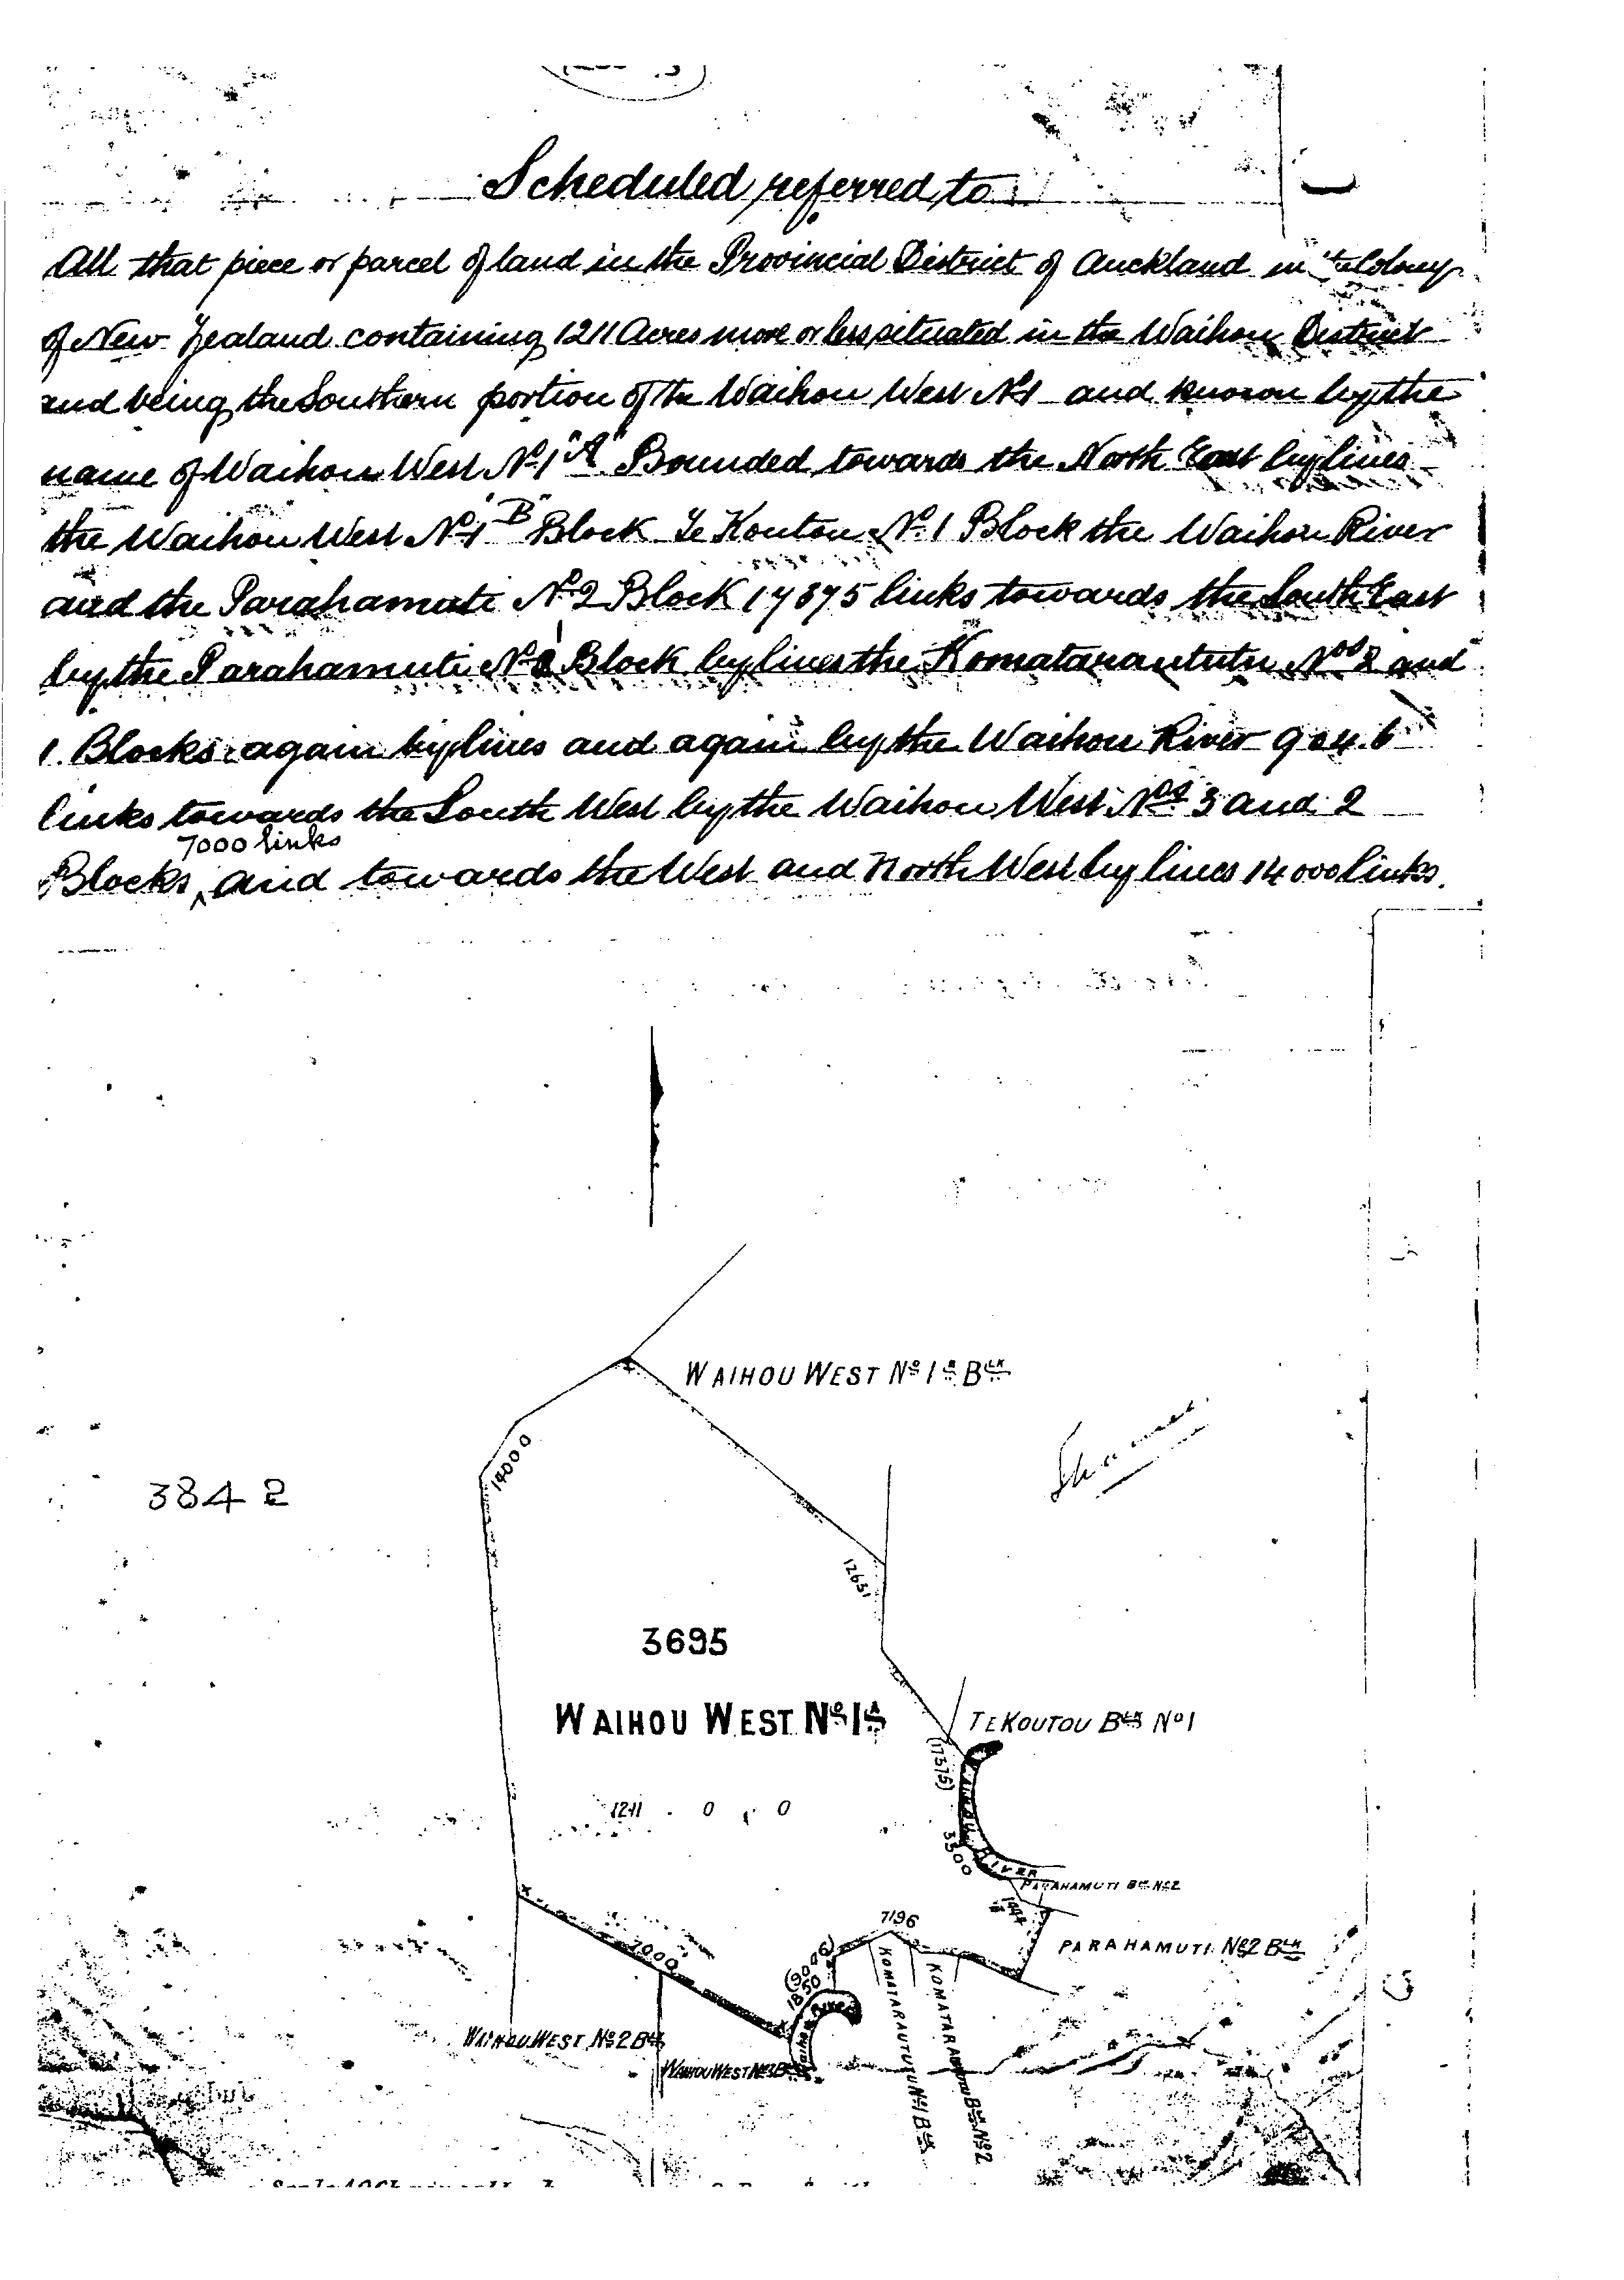 Scheduled referred to
All that piece or parcel of land in the Provincial District of Auckland in the Colony
of New Zealand containing 1211 Acres more or less situated in the Waihou District
and being the Southern portion of the Waihou West No 1 and known by the
name of Waihou West No 1 "A" Bounded towards the North East by lines
the Waihou West No 1 "B" Block Te Koutou No 1 Block the Waihou River
and the Parahamuti No 2 Block 17375 links towards the South East
by the Parahamuti No Block by lines the Komataraututu Nos 2 and
1 Blocks again by lines and again by the Waihou River 9046
links towards the South West by the Waihou West Nos 3 and 2
7000 links
Blocks, and towards the West and North West by lines 14000 links.
WAIHOU WEST No 1 B BLK
14000
3842
12631
3695
WAIHOU WEST No 1A
TE KOUTOU BLK No 1
(17375)
1211 . 0 . 0
WAIHOU RIVER
3300
PARAHAMUTI BLK No 2
7196
PARAHAMUTI No 2 BLK
7000
(9046)
1850
WAIHOU RIVER
KOMATARAUTUTU No 1 BLK
KOMATARAUTUTU BLK No 2
WAIHOU WEST No 2 BLK
WAIHOU WEST No 3 BLK